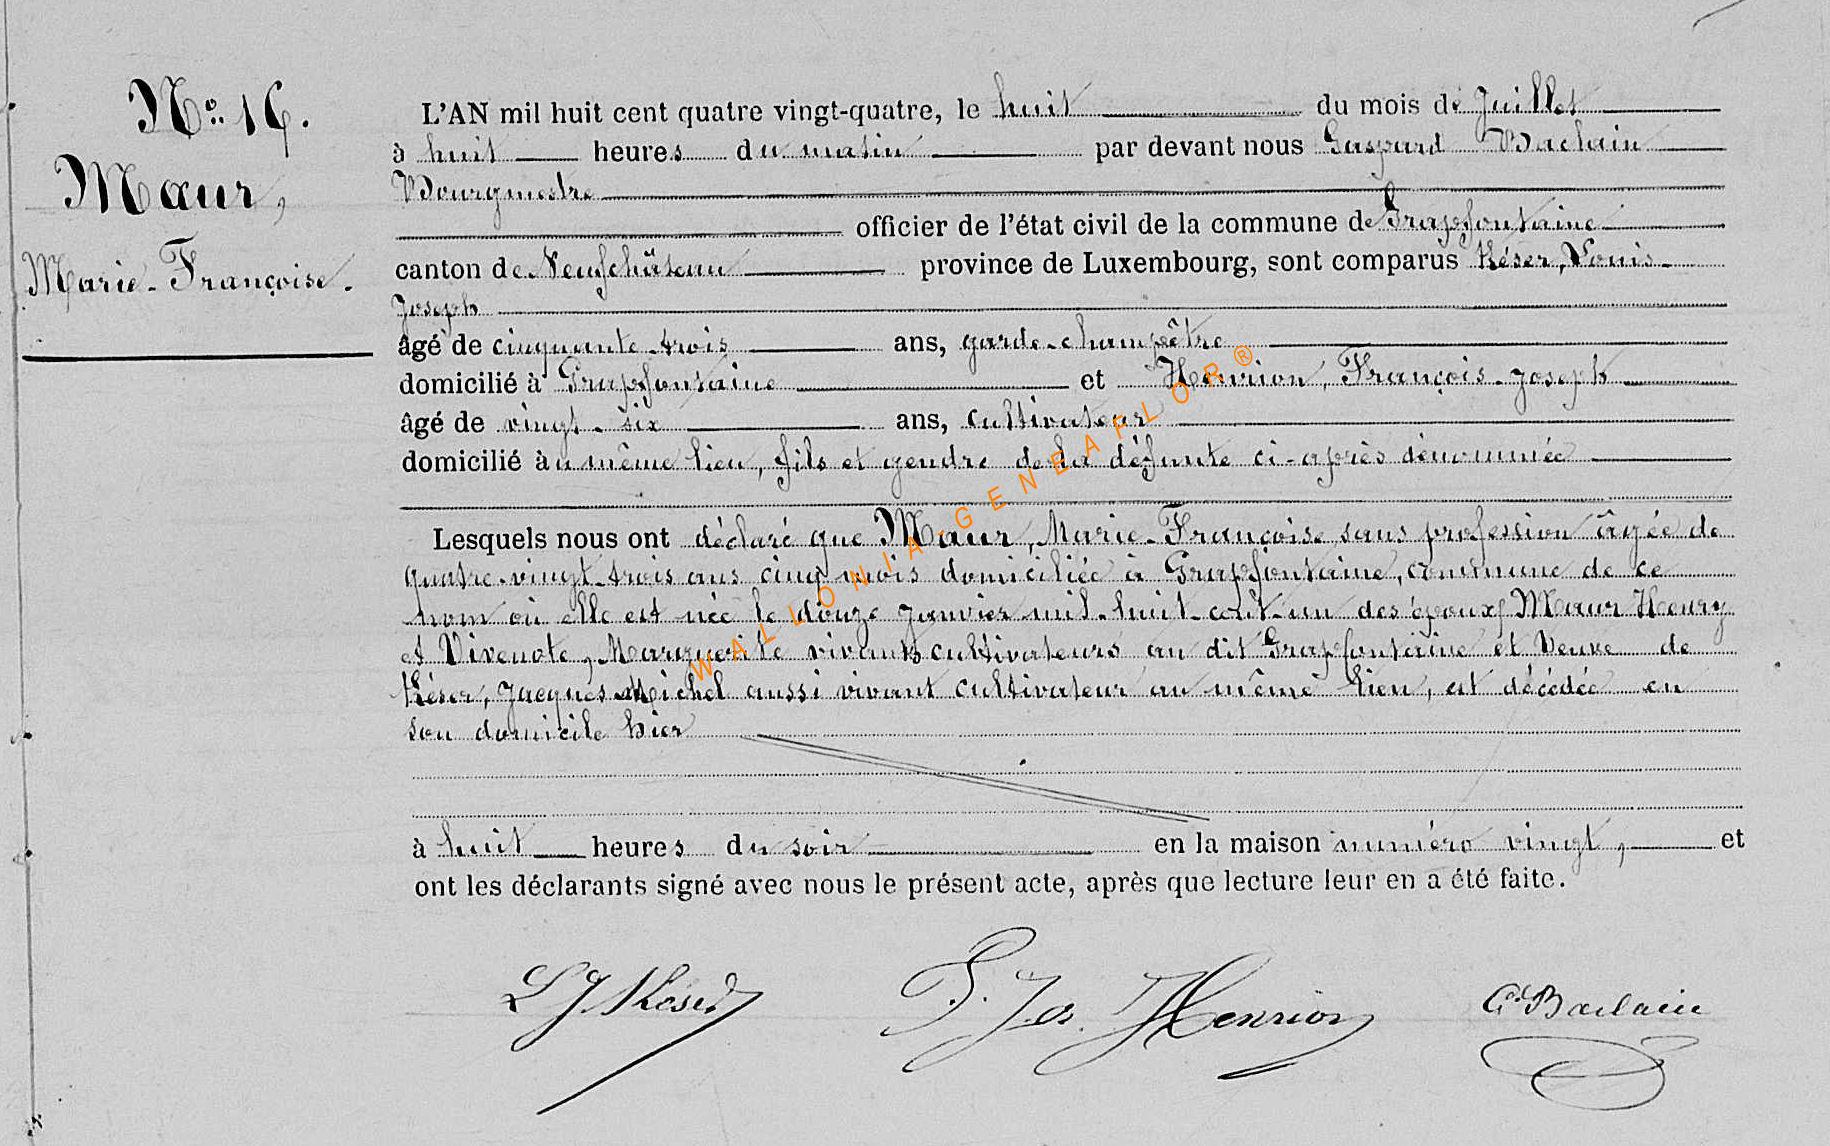 N° 16.
Mœur,
Marie-Françoise.
L'AN mil huit cent quatre vingt-quatre, le huit du mois de Juillet
à huit heures du matin par devant nous Gaspard Baclain
Bourgmestre
officier de l'état civil de la commune de Grapfontaine
canton de Neufchâteau province de Luxembourg, sont comparus Késer, Louis-
Joseph
âgé de cinquante-trois ans, garde-champêtre
domicilié à Grapfontaine et Henrion, François-Joseph
âgé de vingt-six ans, cultivateur
domicilié au même lieu, fils et gendre de la défunte ci-après dénommée
Lesquels nous ont déclaré que Mœur, Marie-Françoise sans profession âgée de
quatre-vingt-trois ans cinq mois domiciliée à Grapfontaine, commune de ce
nom où elle est née le douze janvier mil-huit-cent-un des époux Mœur Henry
et Vivenote, Marguerite vivants cultivateurs au dit Grapfontaine et Veuve de
Késer, Jacques Michel aussi vivant cultivateur au même lieu, est décédée en
son domicile hier
à huit heures du soir en la maison numéro vingt, et
ont les déclarants signé avec nous le présent acte, après que lecture leur en a été faite.
L J Késer F. Jos. Henrion G. Baclain
WALLONIA-GENEAFLOR®